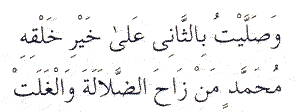 وَصَلَّيْتُ بِالثَّانِى عَلَىٰ خَيْرِ خَلْقِهِ
مُحَمَّدٍ مَنْ زَاحَ الضَّلَالَةَ وَالْغَلَتْ